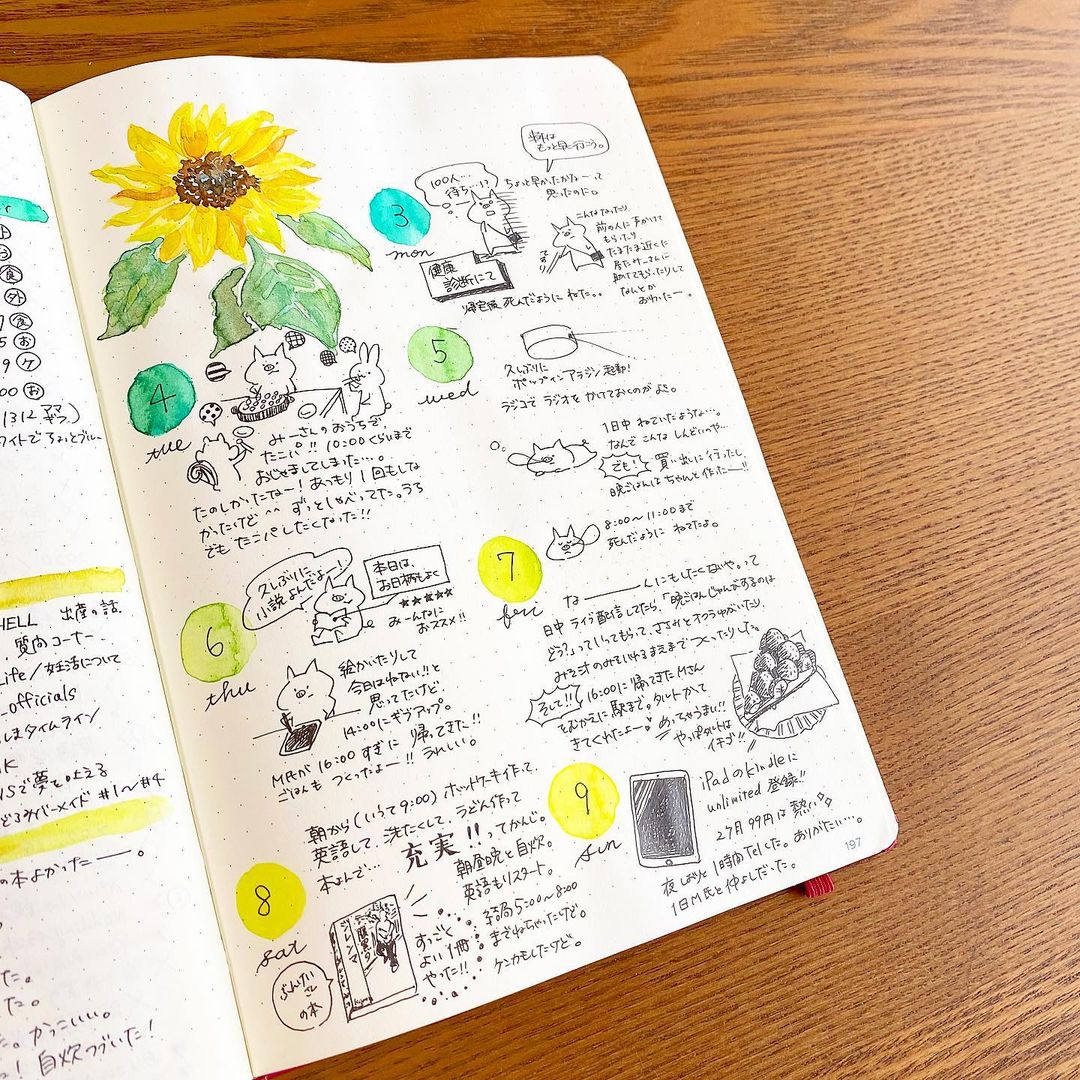 HELL 出産の話
質問コーナー
Life/妊活について
_officials
しまタイムライン
NSで夢を叶える
どろみバーメイド #1〜#4
の本よかったー。
かっこいい。
自炊つづいた!
3
mon
100人…
待ち…!?
ちょっと早かったかなーって
思ったのに。
来年は
もっと早く行こう。
健康
診断にて
こんなになったり
前の人に声かけて
もらったり
たまたま近くに
居たサーさんに
助けてもらったりして
なんとか
おわったー。
帰宅後、死んだようにねた。。
4
tue
みーさんのおうちで、
たこパ!! 10:00くらいまで
おじゃましてしまった…。
たのしかったなー! あつもり1回もしな
かったけど^^ ずっとしゃべってた。うち
でもたこパしたくなった!!
5
wed
久しぶりに
ポップインアラジン起動!
ラジコでラジオをかけておくのがよき。
1日中ねていたような…。
なんでこんなしんどいのや…
でも!
買い出しに行ったし、
晩ごはんはちゃんと作ったー!!
6
thu
久しぶりに
小説よんだよー!
本日は、
お日柄もよく
★★★★★
みーんなに
おススメ!!
絵かいたりして
今日はねない!!と
思ってたけど
14:00にギブアップ。
M氏が16:00すぎに帰ってきた!!
ごはんもつくったよー!! うれしい。
7
fri
8:00〜11:00まで
死んだようにねてたよ。
なーーーんにもしたくないや。って
日中ライブ配信してたら、「晩ごはんじゅんびするのは
どう?」っていってもらって、ささみとオクラゆがいたり、
みそ汁のみそいれるまえまでつくったりした。
そして!!
16:00に帰ってきたMさん
をむかえに駅まで。タルトかって
きてくれたよー♥
めっちゃうまい!!
やっぱタルトは
イチゴ!!
8
sat
朝から(いうて9:00)ホットケーキ作って、
英語して、洗たくして、うどん作って
本よんで…
充実!!
ってかんじ。
朝昼晩と自炊。
英語もリスタート。
結局5:00〜8:00
までねちゃったけど。
ケンカもしたけど。
すっごく
よい1冊
やった!!
ぶんけい
さん
の本
9
sun
iPadのKindleに
unlimited 登録!!
2ヶ月99円は熱い
夜しおりと1時間telした。ありがたい…。
1日M氏と仲よしだった。
197